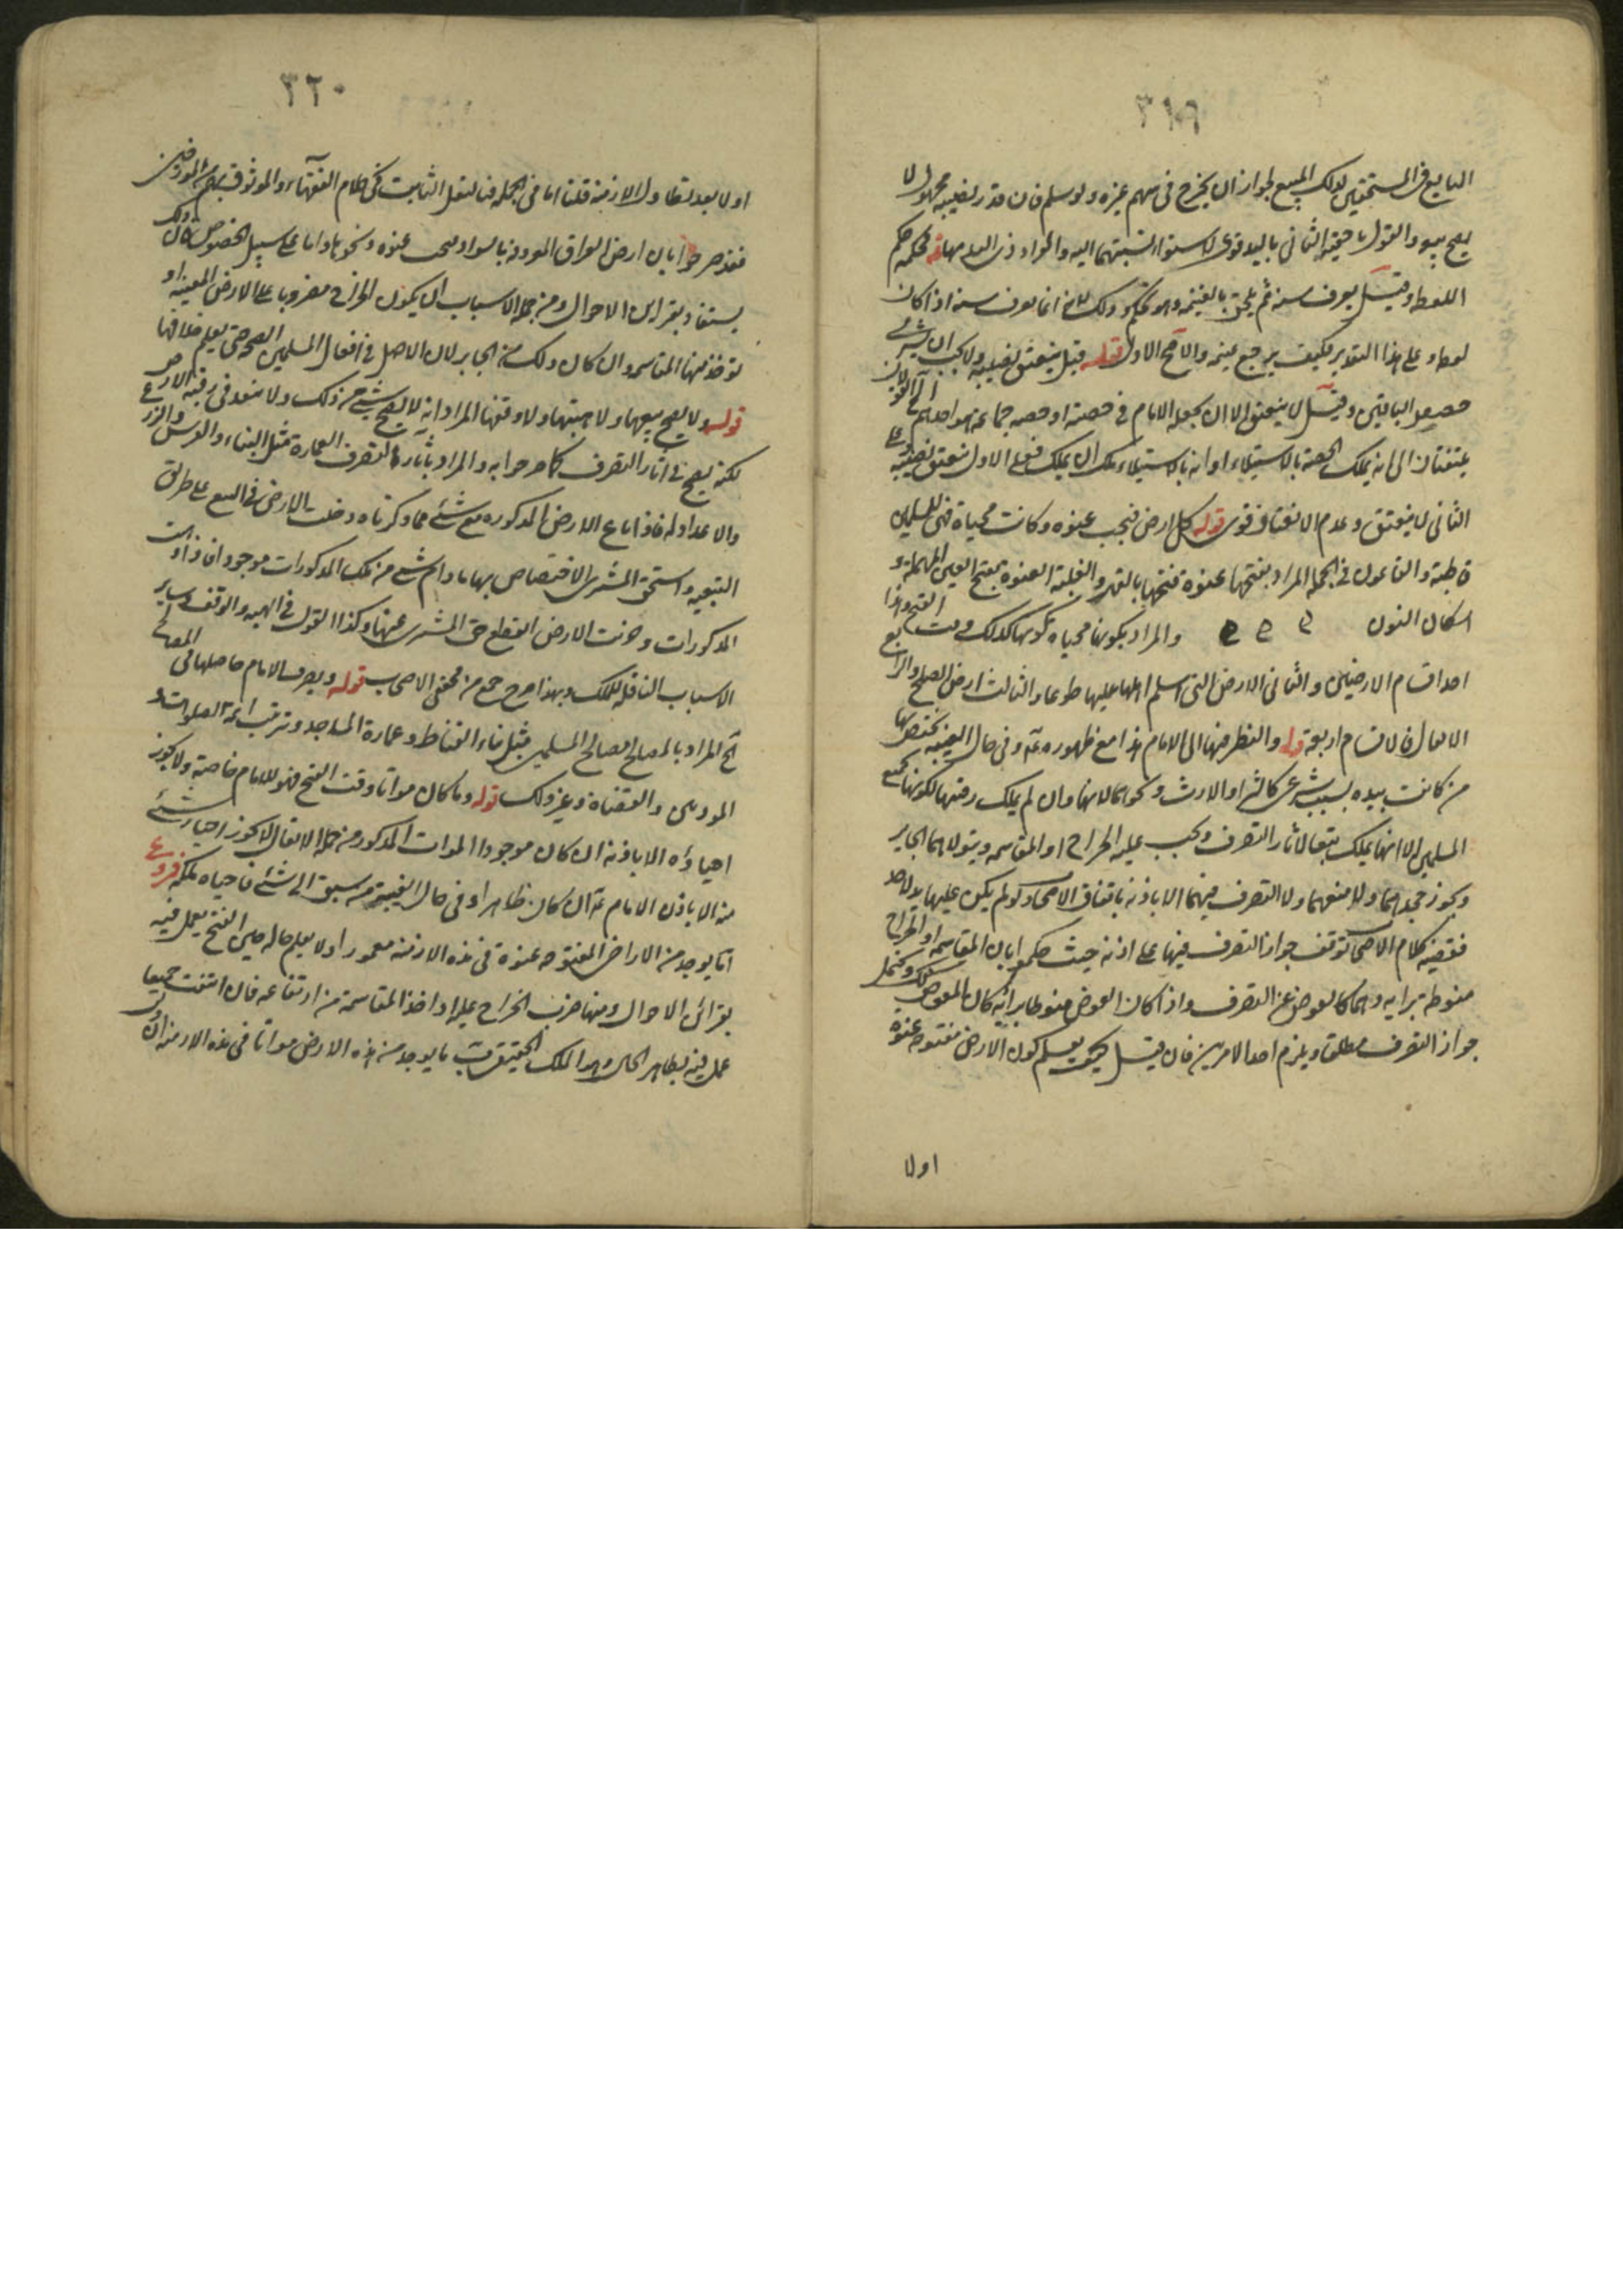 ٣١٩
البايع فى المستحقين لذلك المبيع لجواز ان يخرج فى سهم غيره ولو سلم فان قدر نصيبه مجهول لا
يصح بيعه والقول باحقية الثانى باليد قوى لاستواء نسبتهما اليه والمراد ذى اليد منهما قوله فحكمه حكم
اللقطة وقيل يعرف سنة ثم يلحق بالغنيمة وهو تحكم وذلك لانه انما يعرف سنة اذا كان
لقطة وعلى هذا التقدير فكيف يرجع غنيمة والاصح الاول قوله قيل ينعتق نصيبه ولا يجب ان يشترى
حصص الباقين وقيل لا ينعتق الا ان يجعله الامام فى حصته او حصة جماعة هو احدهم الخ القولان
يلتفتان الى انه يملك الحصة بالاستيلاء او انه بالاستيلاء ملك ان يملك فعلى الاول ينعتق نصيبه وعلى
الثانى لا ينعتق وعدم الانعتاق قوى قوله كل ارض فتحت عنوة وكانت محياة فهى للمسلمين
قاطبة والغانمون فى الجملة المراد بفتحها عنوة فتحها بالقهر والغلبة العنوة بفتح العين المهملة و
اسكان النون والمراد بكونها محياة كونها كذلك وقت الفتح وهذا
احد اقسام الارضين والثانى الارض التى اسلم اهلها عليها طوعا والثالث ارض الصلح والرابع
الانفال فالاقسام اربعة قوله والنظر فيها الى الامام هذا مع ظهوره عم وفى حال الغيبة يختص بها
من كانت بيده بسبب شرعى كالشراء والارث ونحوهما لانها وان لم يملك رقبتها لكونها لجميع
المسلمين الا انها يملك تبعا لآثار التصرف ويجب عليه الخراج او المقاسمة ويتولاهما الجاير
ولا يجوز جحدهما ولا منعهما ولا التصرف فيهما الا باذنه باتفاق الاصحاب ولو لم يكن عليها يد لاحد
فقضية كلام الاصحاب توقف جواز التصرف فيها على اذنه حيث حكموا بان المقاسمة او الخراج
منوط برايه وهما كالعوض عن التصرف واذا كان العوض منوطا برايه كان المعوض كذلك ويحتمل
جواز التصرف مطلقا ويلزم احد الامرين فان قيل كيف يعلم كون الارض مفتوحة عنوة
اولا
٣٢٠
اولا بعد تطاول الازمنة قلنا اما فى الجملة فبالنقل الثابت فى كلام الفقهاء والموثوق بهم من المورخين
فقد صرحوا بان ارض العراق المعروفة بالسواد فتحت عنوة ونحوها واما على سبيل الخصوص فان ذلك
يستفاد بقراين الاحوال ومن جملة الاسباب ان يكون الخراج مضروبا على الارض المعينة او
توخذ منها المقاسمة وان كان ذلك من الجاير لان الاصل فى افعال المسلمين الصحة حتى يعلم خلافها
قوله ولا يصح بيعها ولا هبتها ولا وقفها المراد انه لا يصح شىء من ذلك ولا ينعقد فى رقبة الارض
لكنه يصح فى آثار التصرف كما صرحوا به والمراد بآثار التصرف العمارة مثل البناء والغرس والزرع
والاعداد له فاذا باع الارض المذكورة مع شىء مما ذكرناه دخلت الارض فى البيع على طريق
التبعية واستحق المشترى الاختصاص بها ما دام شىء من تلك المذكورات موجودا فاذا ذهبت
المذكورات وخربت الارض انقطع حق المشترى عنها وكذا القول فى الهبة والوقف وساير
الاسباب الناقلة للملك وبهذا صرح جمع من محققى الاصحاب قوله ويصرف الامام حاصلها فى المصالح
الخ المراد بالمصالح المصالح المسلمين مثل بناء القناطر وعمارة المساجد وترتيب ائمة الصلوات و
المؤذنين والقضاة وغير ذلك قوله وما كان مواتا وقت الفتح فهو للامام خاصة ولا يجوز
احياؤه الا باذنه ان كان موجودا الموات المذكور من جملة الانفال لا يجوز احياء شىء
منه الا باذن الامام عم ان كان ظاهرا وفى حال الغيبة من سبق الى شىء فاحياه ملكه فروع
آ ما يوجد من الاراضى المفتوحة عنوة فى هذه الازمنة معمورا ولا يعلم حاله حين الفتح يعمل فيه
بقرائن الاحوال ومنها ضرب الخراج عليه او اخذ المقاسمة من ارتفاعه فان انتفت جميعا
عمل فيه بظاهر الحال وهو الملك الحقيقى ب ما يوجد من هذه الارض مواتا فى هذه الازمنة ان دل